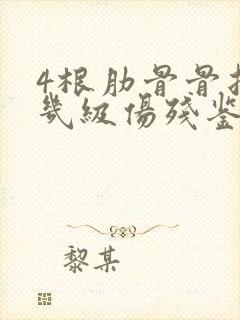 4根肋骨骨
幾級傷殘鉴
黎某